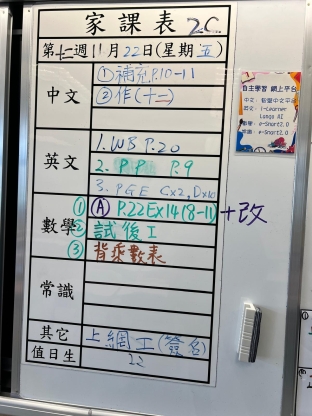 家課表 2C.
第十二週11月22日(星期五)
中文
①補充P.10-11
②作(十二)
英文
1. WB P.20
2. P.P P.9
3. PGE Cx2, Dx10
數學
① Ⓐ P.22Ex14(8-11)+改
② 試後工
③ 背乘數表
常識
其它
上網工(簽名)
值日生
22
自主學習 網上平台
i-Learner
Longo AI
e-Smart2.0
e-Smart2.0